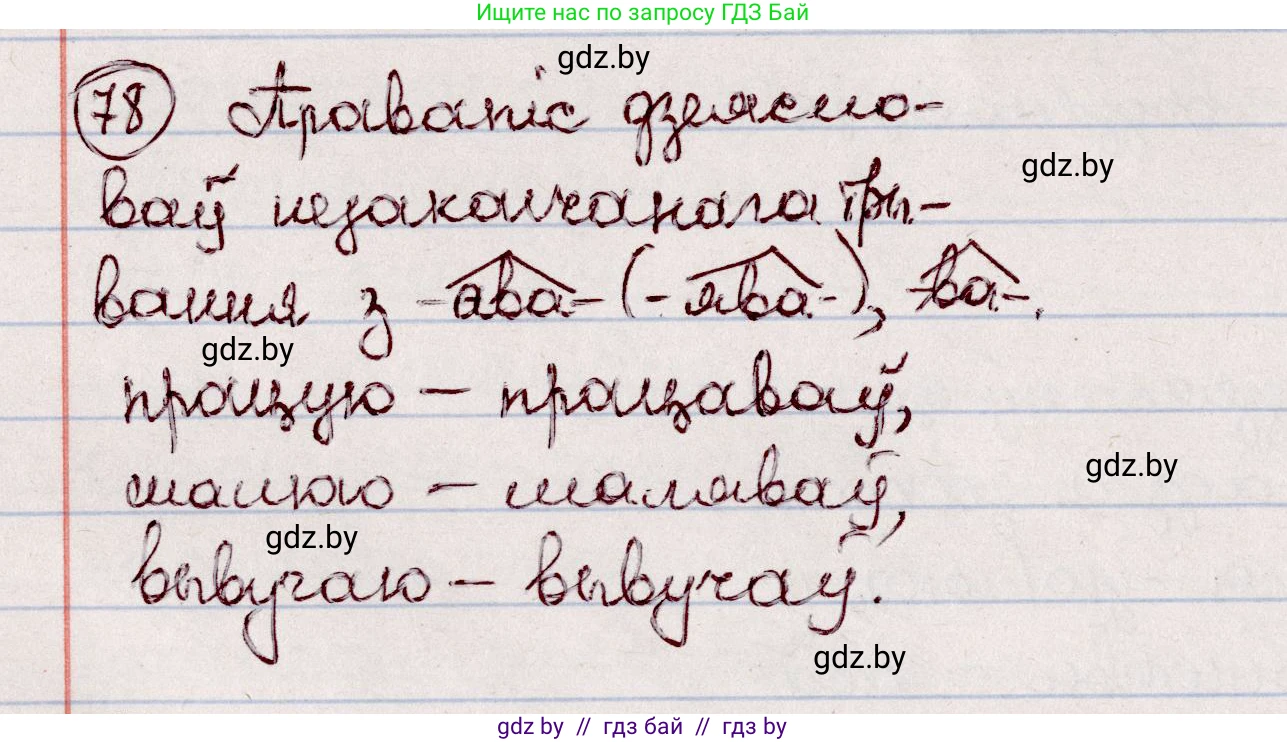 Ищите нас по запросу ГДЗ Бай
gdz.by
78 Правапіс дзеясло-
gdz.by
ваў незакончанага тры-
вання з -ава- (-ява-), -ва-.
gdz.by
працую – працаваў,
gdz.by
малюю – маляваў,
gdz.by
вывучаю – вывучаў.
gdz.by
gdz by // гдз бай // гдз by